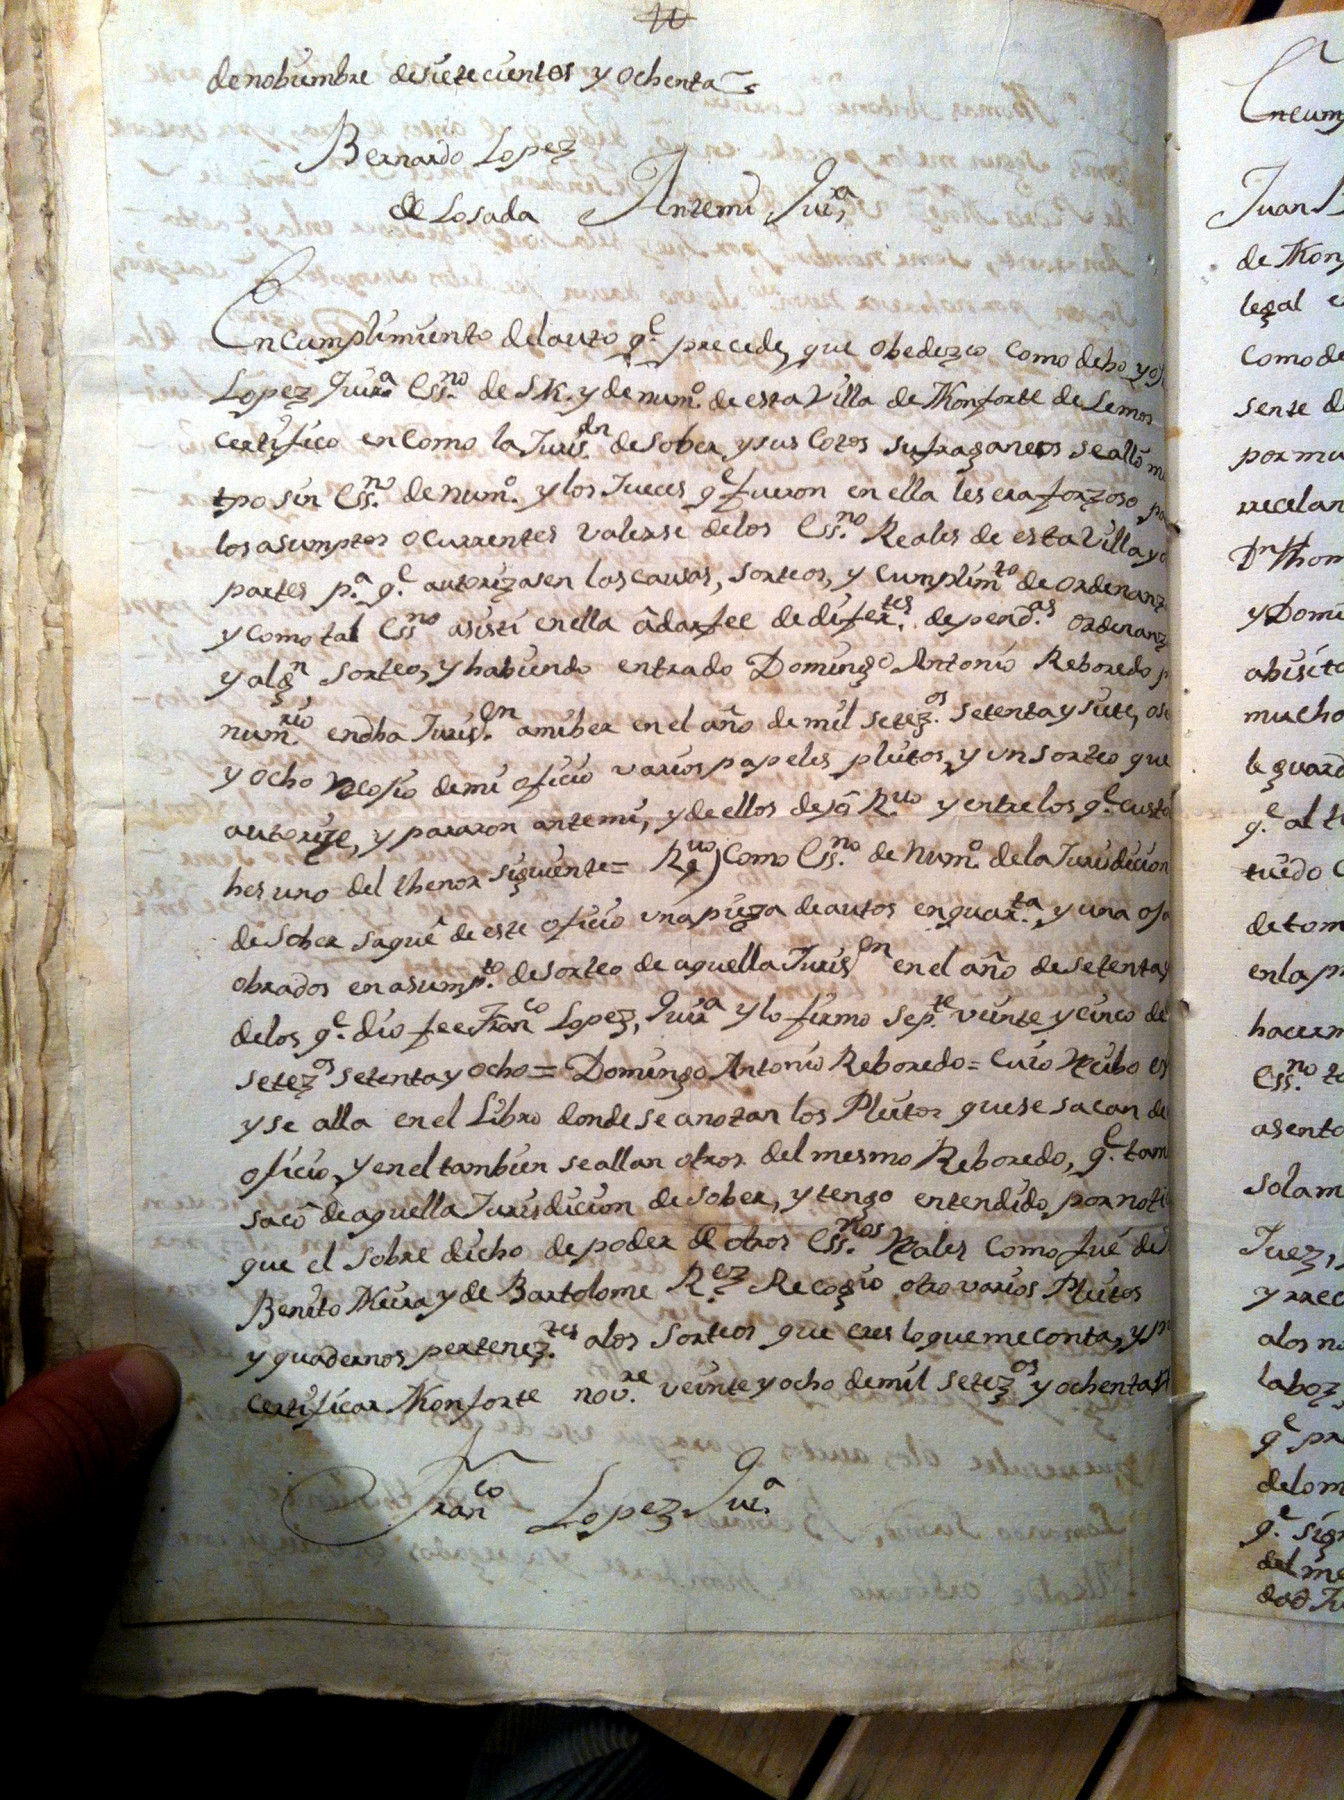 de nobiembre de siete cientos y ochenta
Bernardo Lopez
de Losada Antemi Quir.a
En cumplimiento del auto q.e precede, que obedezco como deho yo
Lopez Quir.a Ess.no de S.M. y de num.o de esta Villa de Monforte de Lemos
Certifico en como la Juris.dn de Sober, y sus Cotos sufraganeos se alló
tpo sin Ess.no de num.o y los Jueces q.e fueron en ella les era forzoso
los asumptos ocurrentes valerse de los Ess.no Reales de esta Villa y
partes p.a q.e autorizasen las causas, sorteos, y cumplim.to de ordenanz
y como tal Ess.no asisti en ella â dar fee de difer.tes depend.as ordenanz
y alg.n sorteo, y habiendo entrado Domingo Antonio Reboredo
num.rio en dha Juris.on amiber en el año de mil setez.os setenta y siete,
y ocho recojio de mi oficio varios papeles pleitos, y un sorteo que
autorize, y pararon antemi, y de ellos dejô R.uo y entre los q.e
hes uno del thenor siguiente= Re.uo) Como Ess.no de Num.o de la Jurisdicion
de Sober saquê de este oficio una pieza de autos en quar.ta, y una oja
obrados en asump.to de sorteo de aquella Juris.on en el año de setenta y
de los q.e dio fee Fran.co Lopez, Quir.a y lo firmo Sep.te veinte y cinco de
setez.os setenta y ocho= Domingo Antonio Reboredo= Cuio recibo
y se alla en el Libro donde se anotan los Pleitos que se sacan de
oficio, y en el tambien se allan otros del mesmo Reboredo, q.e tam
sacô de aquella Jurisdicion de Sober, y tengo entendido por noti
que el sobre dicho de poder de otros Ess.nos Reales como fué de
Benito Neira y de Bartolome R.ez Recogio otro varios Pleitos
y quadernos pertenez.tes a los sorteos que eres lo que me conta, y
certificar Monforte nov.re veinte y ocho de mil setez.os y ochenta
Fran.co Lopez Quir.a
En cump
Juan
de Mon
legal
Como de
sente d
por mu
rrecelar
Dn Thom
y Domi
abisito
mucho
le guard
q.e al
tuido
de tom
en la p
hacerm
Ess.no
asento
solam
Juez,
y rrec
a los
la boz
q.e
de lo m
q.e sig
del me